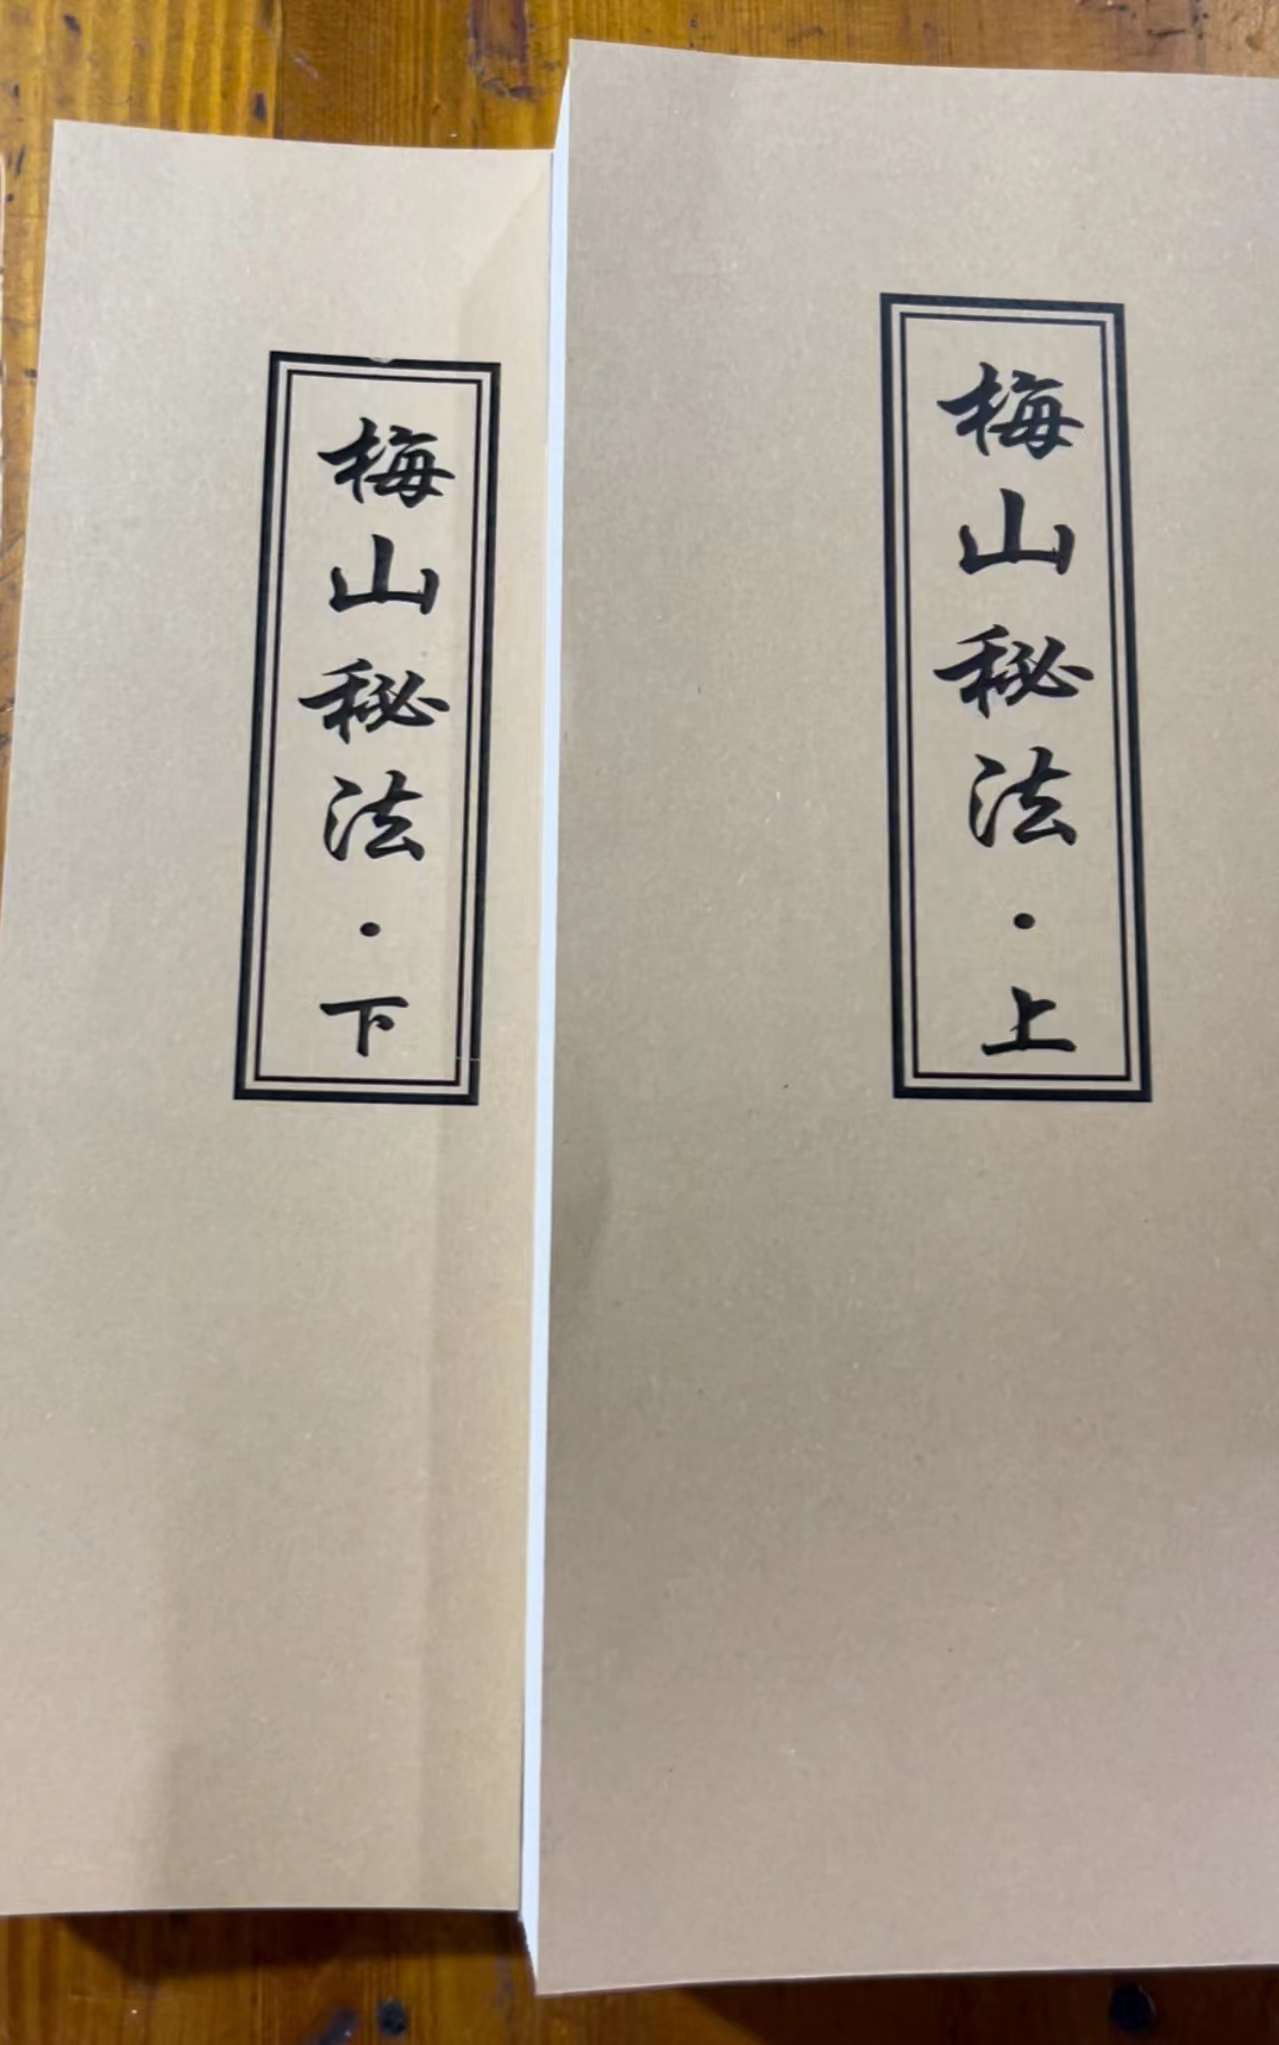 梅山秘法·上
梅山秘法·下